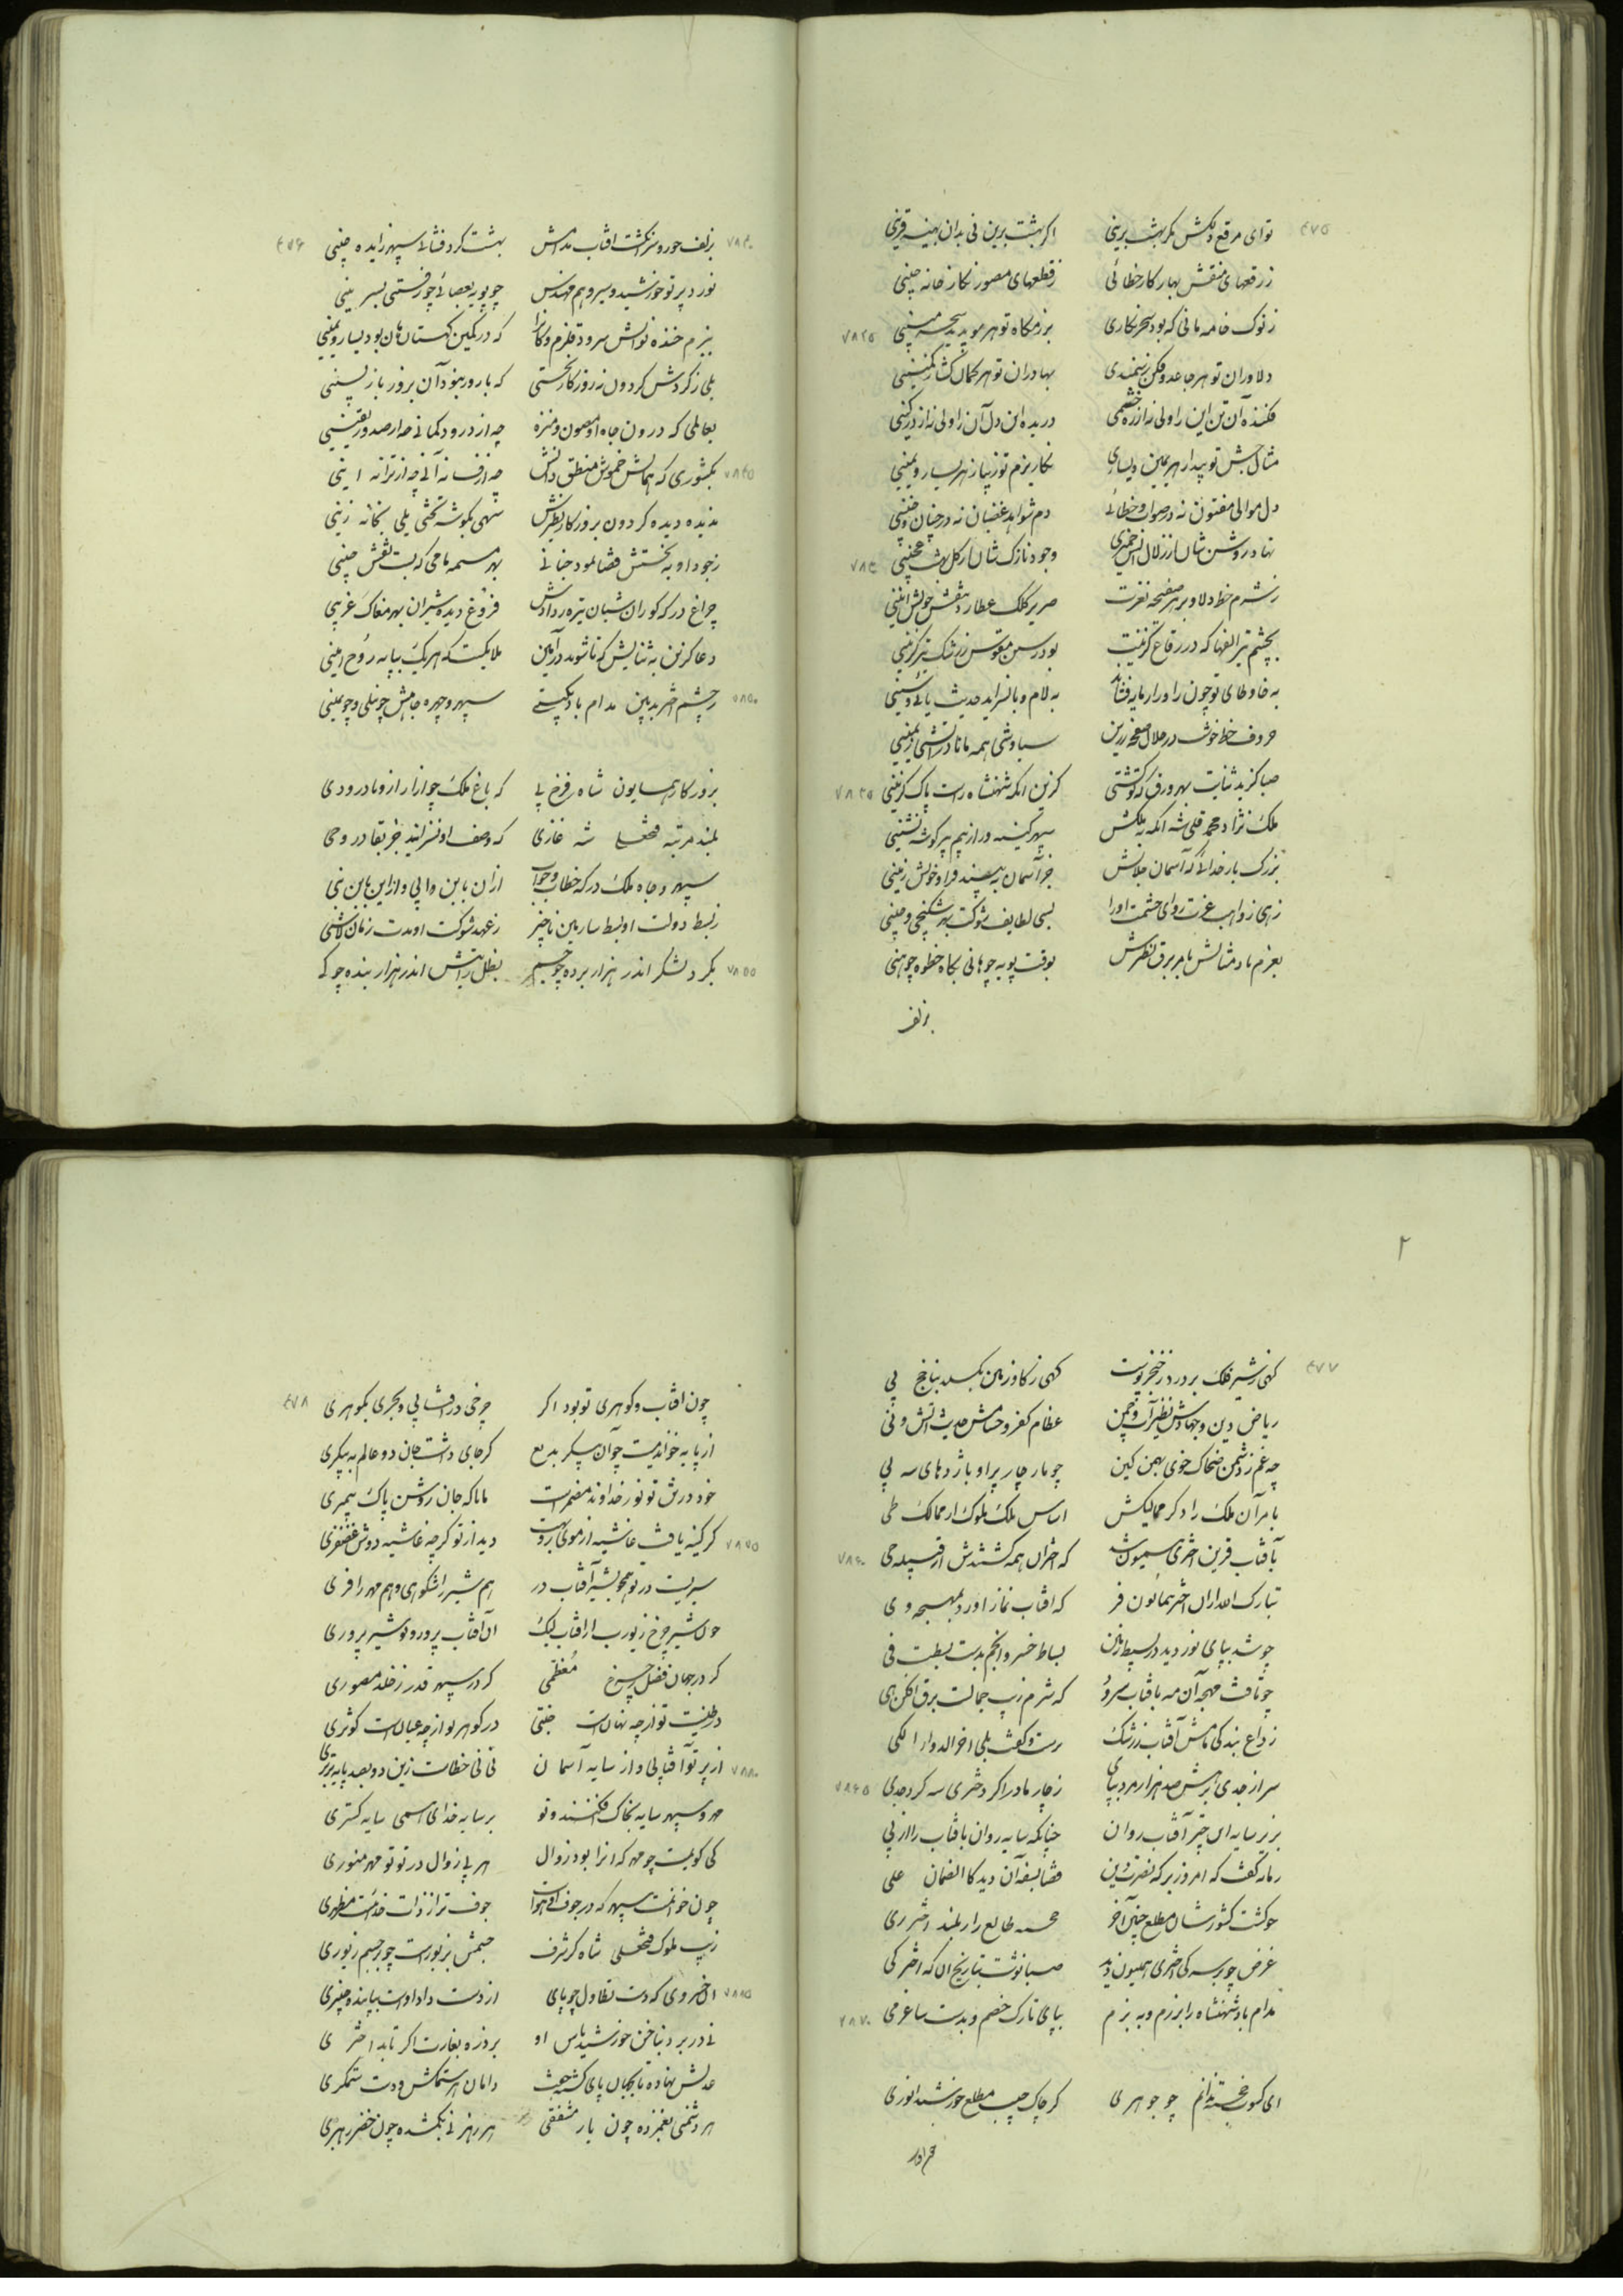 ۴۷۵
توای مرقع دلکش مکر بهشت برینی اکر بهشت برین نی بدان بهینه قرینی
ز رقعهای منقش بهار کار خطائی ز قطعهای مصور نکار خانه چینی
ز نوک خامه مانی که بود سحر نکاری بزمکاه تو هر مو پدید
۷۸۲۵
دلاوران تو هر جا عدو فکن بهادران تو هر کمان کش
فکنده آن تن این را ولی نه از ره خشمی دریده این دل آن را ولی نه از در کینی
مثال جیش تو پیدا ز هر یمین و یساری نکار بزم تو زیبا ز هر یسار و یمینی
دل موالی مفتون نه در صواب و خطائی دم شواهد غضبان نه در چنان و چنینی
نهاد روشن شان از زلال خمیری وجود نازک شان از کل بهشت عجینی
۷۸۳۰
ز شرم خط دلاویز هر صفیحه نغزت صریر کلک عطارد بنقش خویش انینی
بچشم تیر الفها که در رقاع کزینت بود رسن مقوس ز رشک تیر کزینی
به خا و طای تو چون را و را به لام و با نسراید حدیث یائی و سینی
حروف خط خوشت در خلال صفحه زرین سیاوشی همه مانا در آتشی
صبا کزید ثنایت بهر ورق که نوشتی کزین آنکه شهنشاه راست پاک کزینی
۷۸۳۵
ملک نژاد محمد قلی شه آنکه به ملکش سپهر کینه ور از بیم هر کوشه نشینی
بزرک بار خدائی که آسمان جلالش جز آسمان به نبیند فراز خویش زمینی
زهی ز واهب عزت روای حشمت او را بسی لطایف شوکت بهر شکنجی و چینی
بعزم باد مثالش بامر برق نظیرش بوقت پویه چو بادی بکاه خطوه چو
بزلف
۴۷۶
۷۸۴۰
بزلف حور و سر انکشت افتاب مدامش بهشت کرد فشانی سپهر زایده چینی
نورد پرتو خورشید و سیر و هم مهندس چو پویه بعصائی چو رفتنی بسرینی
ببزم خنده نوالش سرود قلزم و کان را که در کمین کهستان هان بود یسار و یمینی
بلی ز کردش کردون ز روز کار نخستی که بار ور بنود آن بروز باز پسینی
بعالمی که درون جاه او مصون و منزه چه از درود کمانی چه از صدور یقینی
۷۸۴۵
بکشوری که همالش خموش منطق دانش چه از فسانه آنی چه از ترانه اینی
ندیده دیده کردون بروز کار نظیرش تنهی بکوشه تختی یلی بخانه زینی
ز جود او به نخستش قضا نمود جنانی بهر مسمه نامی که بست نقش جنینی
چراغ درکه کوران شبان تیره ز دادش فروغ دیده شیران بهر مغاک عرینی
دعا کزین به ثنایش که تا شوند در آمین ملایکست که هر یک بپایه روح امینی
۷۸۵۰
ز چشم اختر بدبین مدام باد سپهر و چهره جاهش چو نیلی و چو جبینی
بروز کار همایون شاه فرخ پی که باغ ملک چو آزار از و نادر و دی
بلند مرتبه فتحعلی شه غازی که وصف او نسرایند جز بقادر و حی
سپهر و جاه ملک در که خطاب و جواب از آن باین وا بی و از این بآن بنی
ز بسط دولت او بسط سار مین ناچیز ز عهد شوکت او مدت زمان لاشی
۷۸۵۵
بکرد لشکر اندر هزار برده چو جم بظل رایتش اندر هزار بنده چو کی
۲
۴۷۷
کهی ز شیر فلک بر درد ز خنجر پوست کهی ز کاو زمین بکسلد بناخج پی
ریاض دین و جهادش نظیر آب و چمن عظام کفر و حسامش حدیث آتش و نی
چه غم ز دشمن ضحاک خوی بهمن کین چو مار چار پر او باژدهای سه پی
بامر آن ملک راد کز ممالیکش اساس ملک ملوک از ممالک طی
۷۸۶۰
بآفتاب قرین اختری میمون شد که اختران همه کشتندش از قبیله حی
تبارک الله از ان اختر همایون فر که افتاب نماز اورد بمهچه وی
چو شد بپای نور دید در بسیط زمین بساط خسرو انجم بدست بسطت فی
چو تافت مهچه آن مه بافتاب سرود که شرم زیب جمالت برقع افکن هی
ز داغ بندکی تاش آفتاب ز رشک سرشت و کفت بلی اخر الدواء الکی
۷۸۶۵
سر از جدی ز برش صد هزار مرد بپای ز چار مادر اکر دختری سه کرد جدی
بزیر سایه این چتر آفتاب روان چنانکه سایه روان بافتاب را از پی
زمانه کفت که امروز بر که نصرت و دین قضا بسفت آن دید کا الضمان علی
چو کشت کشور شان مطلع چنین اختر خجسته طالع دار بلند اختر ری
غرض چو بر سه کی اختری همیون دید صبا نوشت بتاریخ ان که اختر کی
۷۸۷۰
مدام باد شهنشاه را برزم و به بزم بپای تارک خصم و بدست ساغر می
ای کسوت خجسته ندانم چو جوهری کز چاک جیب مطلع خورشید انوری
۴۷۸
چون افتاب و کوهری تو بود اکر چرخی در افشانی و بحری بکوهری
از پایه خواندمیت چو آن پیکر بدیع کر جای داشت جان دو عالم به پیکری
خود درش تو نور خداوند مضمر است مانا که جان روشن پاک پیمبری
۷۸۷۵
کر کینه یافت غاشیه از موی بروت دید از تو کرچه غاشیه دوش غضنفری
شیریست در تو همچو بشیر آفتاب در هم شیر را شکوهی و هم مهر را فری
چون شیر چرخ زیورت از افتاب لیک ان آفتاب پرور و تو شیر پروری
کر در جهان فضل چرخ معظمی کر در سپهر قدر ز خلد مصوری
در طینت تو از چه نهانست جنتی در کوهر تو از چه عیانست کوثری
۷۸۸۰
از پرتو آفتابی و از سایه آسمان نی نی خطاست زین دو بصد پایه برتری
مهر و سپهر سایه بخاک افکنند و تو بر سایه خدای همی سایه کستری
کی کویمت چو مهر که انرا بود زوال هر بی زوال در تو تو مهر منوری
چون خوانمت سپهر که در جوف او هواست جوف ترا ز ذات خدائیست مظهری
زیب ملوک فتحعلی شاه کز شرف جسمش بزیور است چو بر جسم زیوری
۷۸۸۵
ان خسروی که دست تطاول چو پای از دست داد اوست بپابند و چنبری
نی در برد بناخن خورشید پاس او بر ذره بغارت اکر تابد اختری
عدلش نهاده تا بجهان پای دامان هر ستمکش و دست ستمکری
هر دشمنی بغمزده چون یار مشفقی هر رهزنی بکمشده چون خضر رهبری